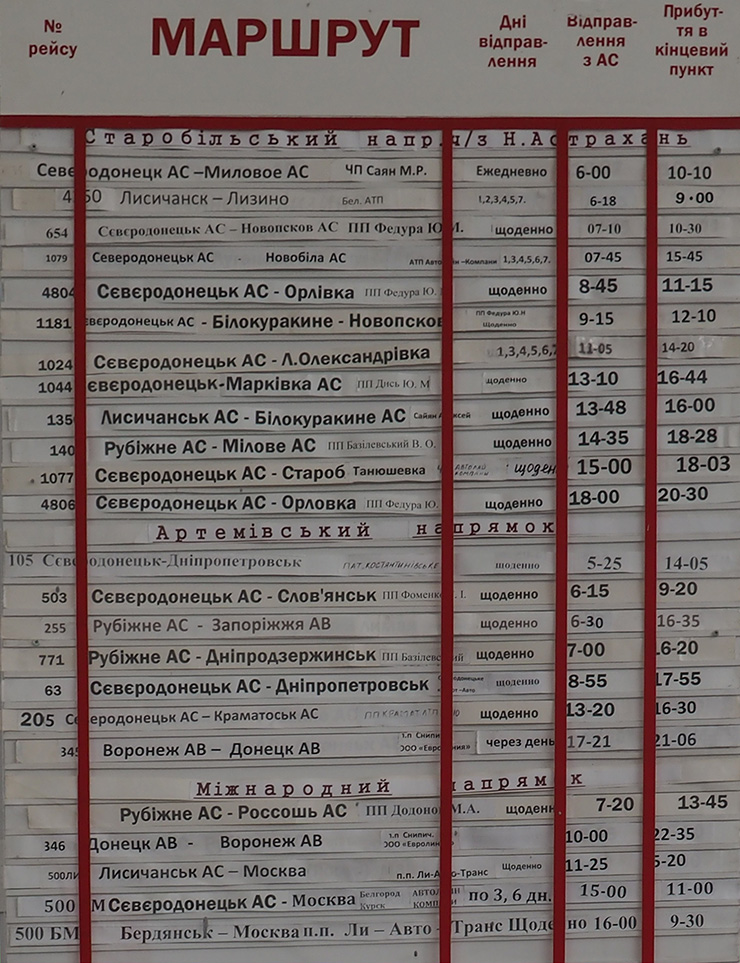 № рейсу МАРШРУТ Дні відправ-лення Відправ-лення з АС Прибут-тя в кінцевий пункт
Старобільський напр.ч/з Н.Астрахань
Северодонецк АС –Миловое АС ЧП Саян М.Р. Ежедневно 6-00 10-10
Лисичанск – Лизино Бел. АТП 1,2,3,4,5,7. 6-18 9·00
654 Сєвєродонецьк АС – Новопсков АС ПП Федура Ю.М. щоденно 07-10 10-30
1079 Северодонецьк АС - Новобіла АС 1,3,4,5,6,7. 07-45 15-45
4804 Сєвєродонецьк АС - Орлівка ПП Федура Ю. щоденно 8-45 11-15
1181 вєродонецьк АС - Білокуракине - Новопсков ПП Федура Ю.Н Щоденно 9-15 12-10
1024 Сєвєродонецьк АС - Л.Олександрівка 1,3,4,5,6,7 11-05 14-20
1044 євєродонецьк-Марківка АС ПП Дись Ю. М щоденно 13-10 16-44
135 Лисичанськ АС - Білокуракине АС щоденно 13-48 16-00
140 Рубіжне АС - Мілове АС ПП Базілевський В. О. щоденно 14-35 18-28
1077 Сєвєродонецьк АС - Староб Танюшевка щоден 15-00 18-03
4806 Сєвєродонецьк АС - Орловка ПП Федура Ю. щоденно 18-00 20-30
Артемівський напрямок
105 Сєвєродонецьк-Дніпропетровськ ПАТ. КОСТАНТИНІВСЬКЕ щоденно 5-25 14-05
503 Сєвєродонецьк АС - Слов'янськ ПП Фоменко Г. І. щоденно 6-15 9-20
255 Рубіжне АС - Запоріжжя АВ щоденно 6-30 16-35
771 Рубіжне АС - Дніпродзержинськ ПП Базілевський щоденно 7-00 16-20
63 Сєвєродонецьк АС - Дніпропетровськ щоденно 8-55 17-55
205 Сєвєродонецьк АС – Краматоськ АС щоденно 13-20 16-30
345 Воронеж АВ – Донецк АВ ООО «Евролиния» через день 17-21 21-06
Міжнародний напрямок
Рубіжне АС - Россошь АС ПП Додонов М.А. щоденн 7-20 13-45
346 Донецк АВ - Воронеж АВ ООО «Евролин 10-00 22-35
500ЛИ Лисичанськ АС – Москва п.п. Ли-Авто-Транс Щоденно 11-25 5-20
500 М Сєвєродонецьк АС - Москва Белгород Курск по 3, 6 дн. 15-00 11-00
500 БМ Бердянськ – Москва п.п. Ли – Авто – Транс Щоденно 16-00 9-30